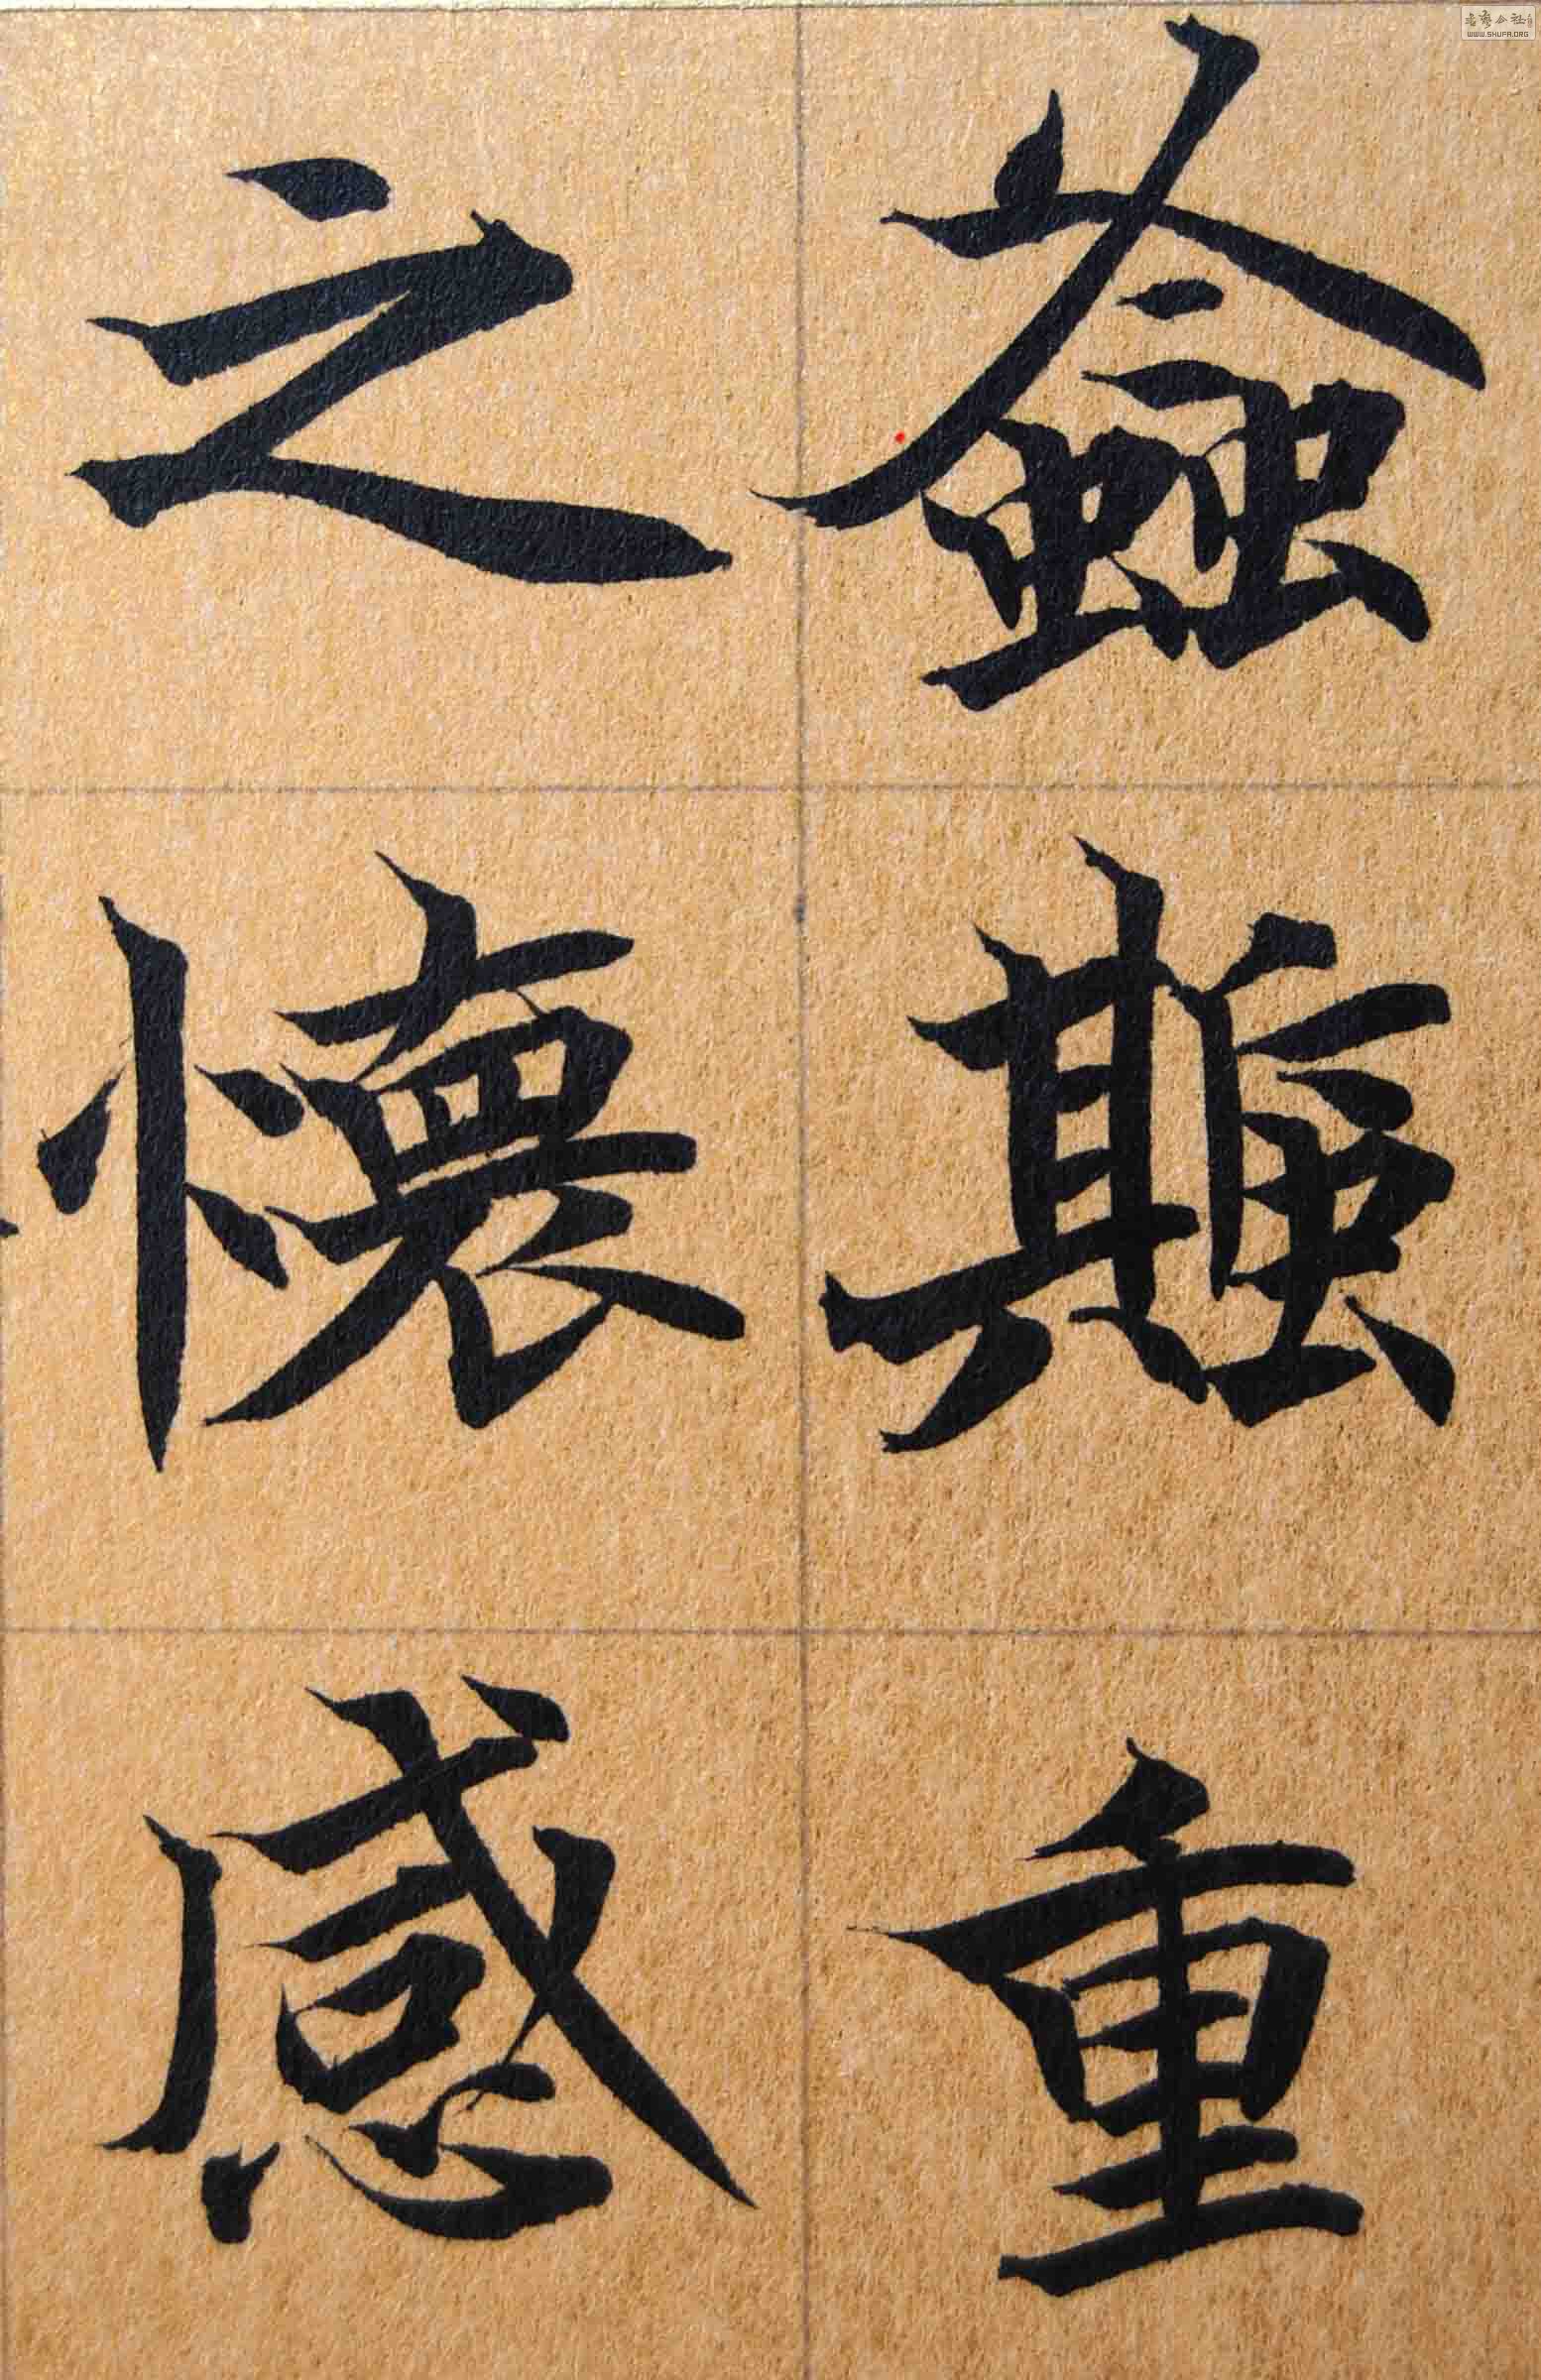 螽蟴重
之懷感
書藝公社
WWW.SHUFA.ORG